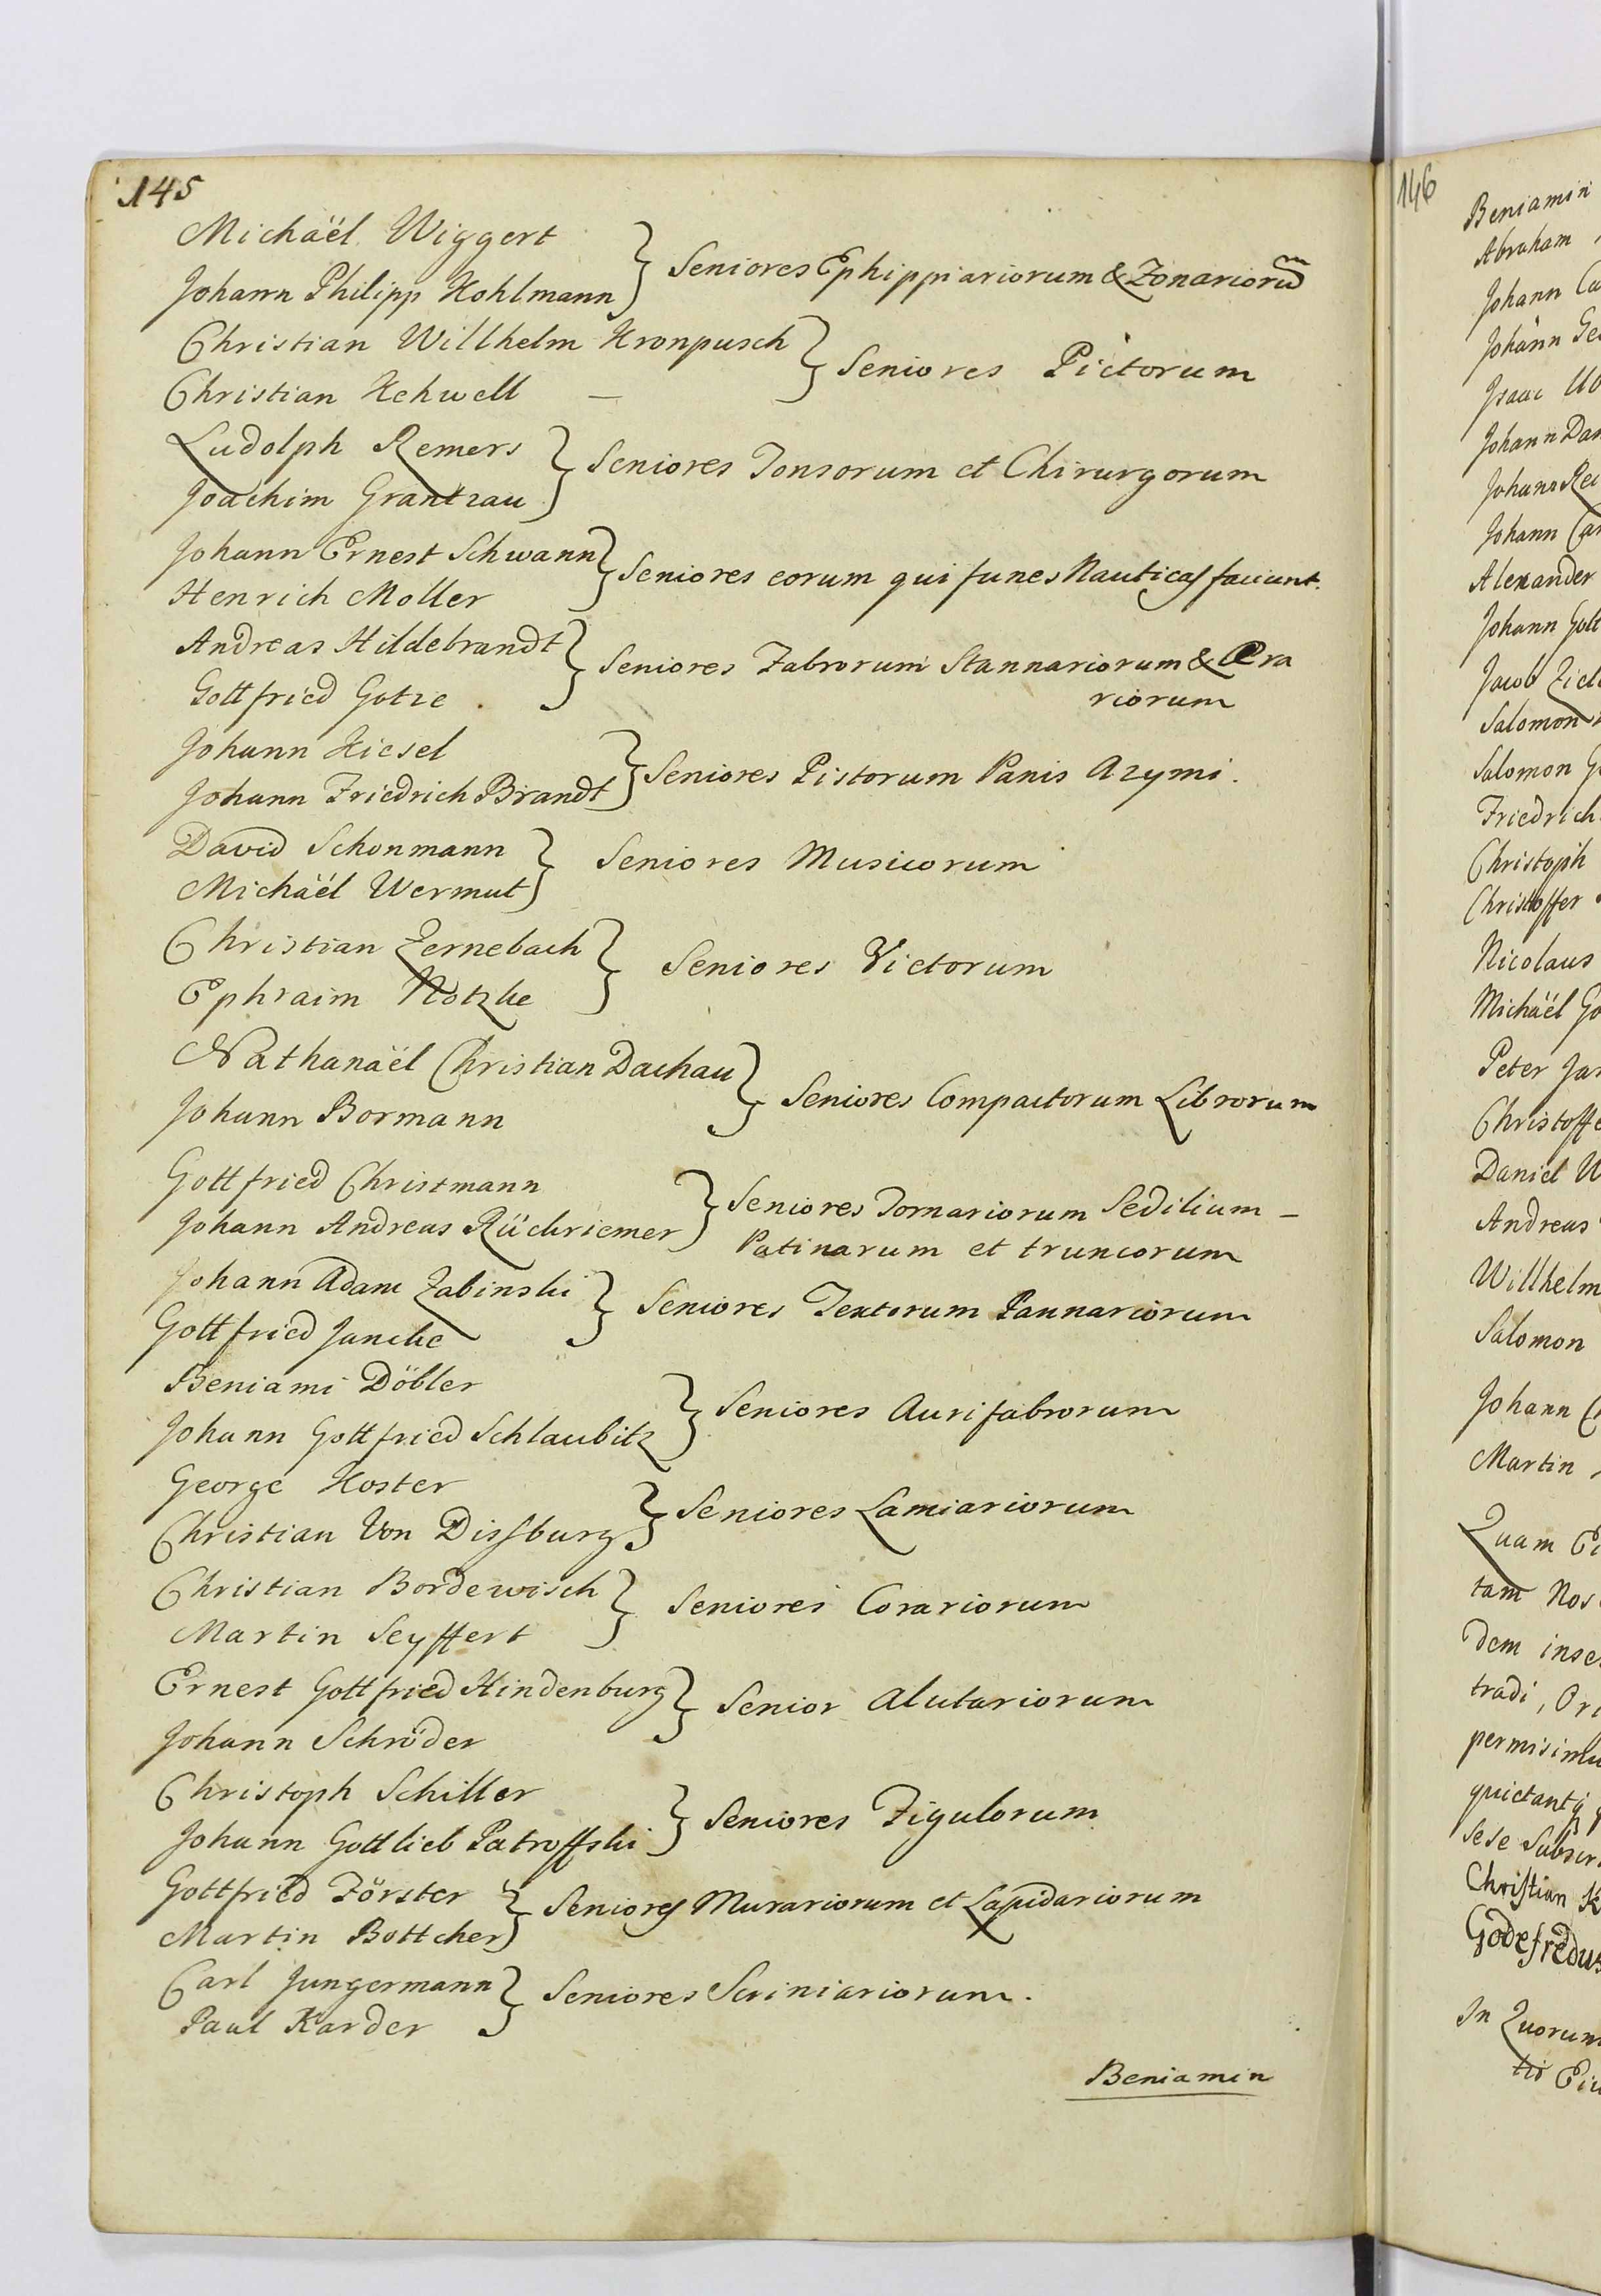 145
Michäël Wiggert
Johann Philipp Kohlmann } Seniores Ephippiariorum & Zonariorũ
Christian Willhelm Kronpusch
Christian Kehwell — } Seniores Pictorum
Ludolph Remers
Joachim Grantzau } Seniores Tonsorum et Chirurgorum
Johann Ernest Schwann
Henrich Moller } Seniores eorum qui funes Nauticas faciunt.
Andreas Hildebrandt
Gottfried Gotze . } Seniores Fabrorum Stannariorum & Æra
riorum
Johann Kiesel
Johann Friedrich Brandt } Seniores Pistorum Panis Azymi.
David Schonmann
Michäël Wermut } Seniores Musicorum
Christian Zernebach
Ephraim Notzke } Seniores Victorum
Nathanäël Christian Dachau
Johann Bormann } Seniores Compactorum Librorum
Gottfried Christmann
Johann Andreas Rückriemer } Seniores Tornariorum Sedilium –
Patinarum et truncorum
Johann Adam Zabinski
Gottfried Jancke } Seniores Textorum Pannariorum
Beniami Döbler
Johann Gottfried Schlaubitz } Seniores Aurifabrorum
George Koster
Christian Von Dissburg } Seniores Lamiariorum
Christian Bordewisch
Martin Seyffert } Seniores Corariorum
Ernest Gottfried Hindenburg
Johann Schröder } Senior Alutariorum
Christoph Schiller
Johann Gottlieb Patroffski } Seniores Figulorum
Gottfried Förster
Martin Bottcher } Seniores Murariorum et Lapidariorum
Carl Jungermann
Paul Karder } Seniores Scriniariorum.
Beniamin
146
Beniamin
Abraham
Johann
Johann
Isaac
Johann
Johann
Johann
Alexander
Johann
Jacob
Salomon
Salomon
Friedrich
Christoph
Christoffer
Nicolaus
Michäël
Peter
Daniel
Andreas
Willhelm
Salomon
Johann
Martin
Quam
tam Nos
dem
tradi,
sese
Christian
Godefredus
In Quorum